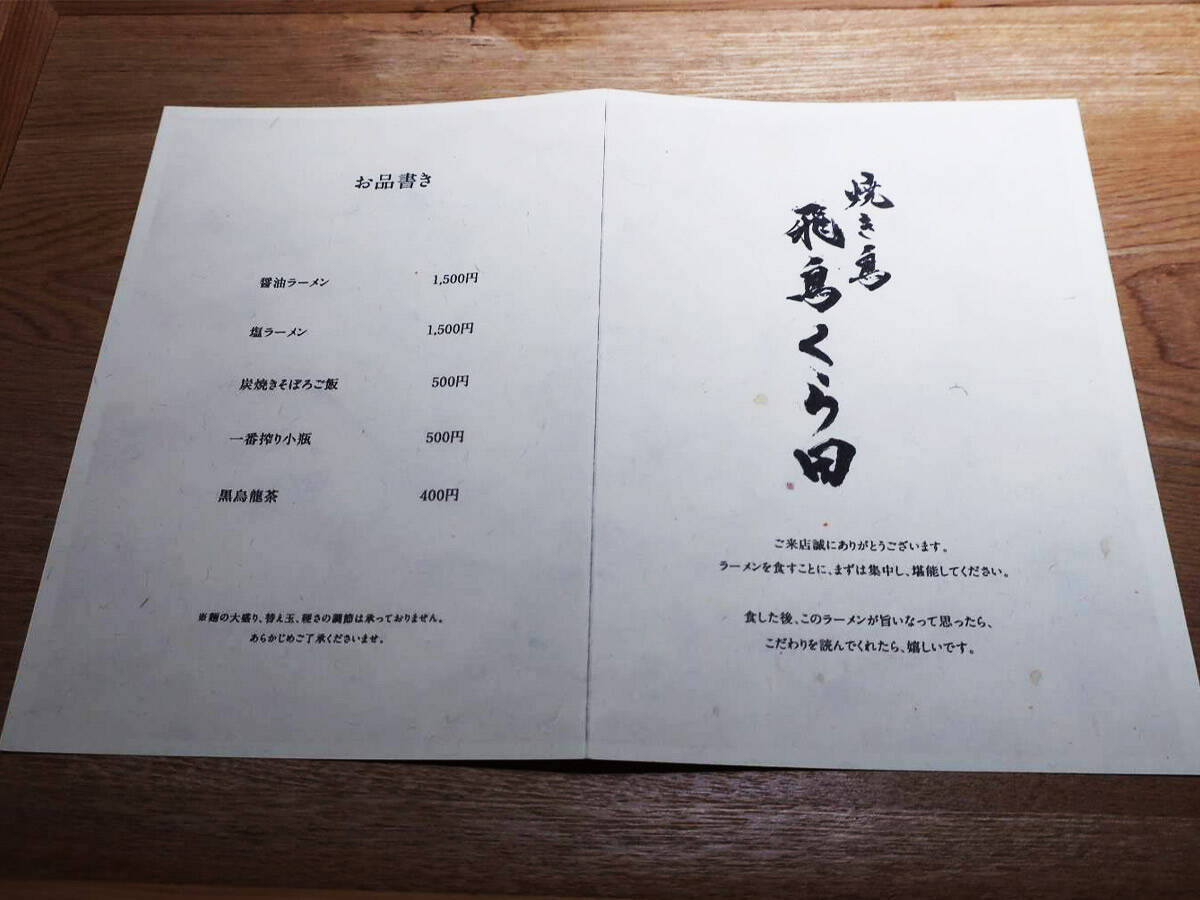 お品書き
醤油ラーメン 1,500円
塩ラーメン 1,500円
炭焼きそぼろご飯 500円
一番搾り小瓶 500円
黒烏龍茶 400円
※麺の大盛り、替え玉、硬さの調節は承っておりません。
あらかじめご了承くださいませ。
焼き鳥
飛鳥くら田
ご来店誠にありがとうございます。
ラーメンを食すことに、まずは集中し、堪能してください。
食した後、このラーメンが旨いなって思ったら、
こだわりを読んでくれたら、嬉しいです。